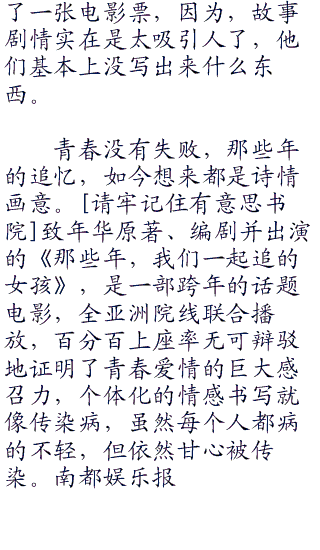 了一张电影票，因为，故事
剧情实在是太吸引人了，他
们基本上没写出来什么东
西。
青春没有失败，那些年
的追忆，如今想来都是诗情
画意。[请牢记住有意思书
院]致年华原著、编剧并出演
的《那些年，我们一起追的
女孩》，是一部跨年的话题
电影，全亚洲院线联合播
放，百分百上座率无可辩驳
地证明了青春爱情的巨大感
召力，个体化的情感书写就
像传染病，虽然每个人都病
的不轻，但依然甘心被传
染。南都娱乐报